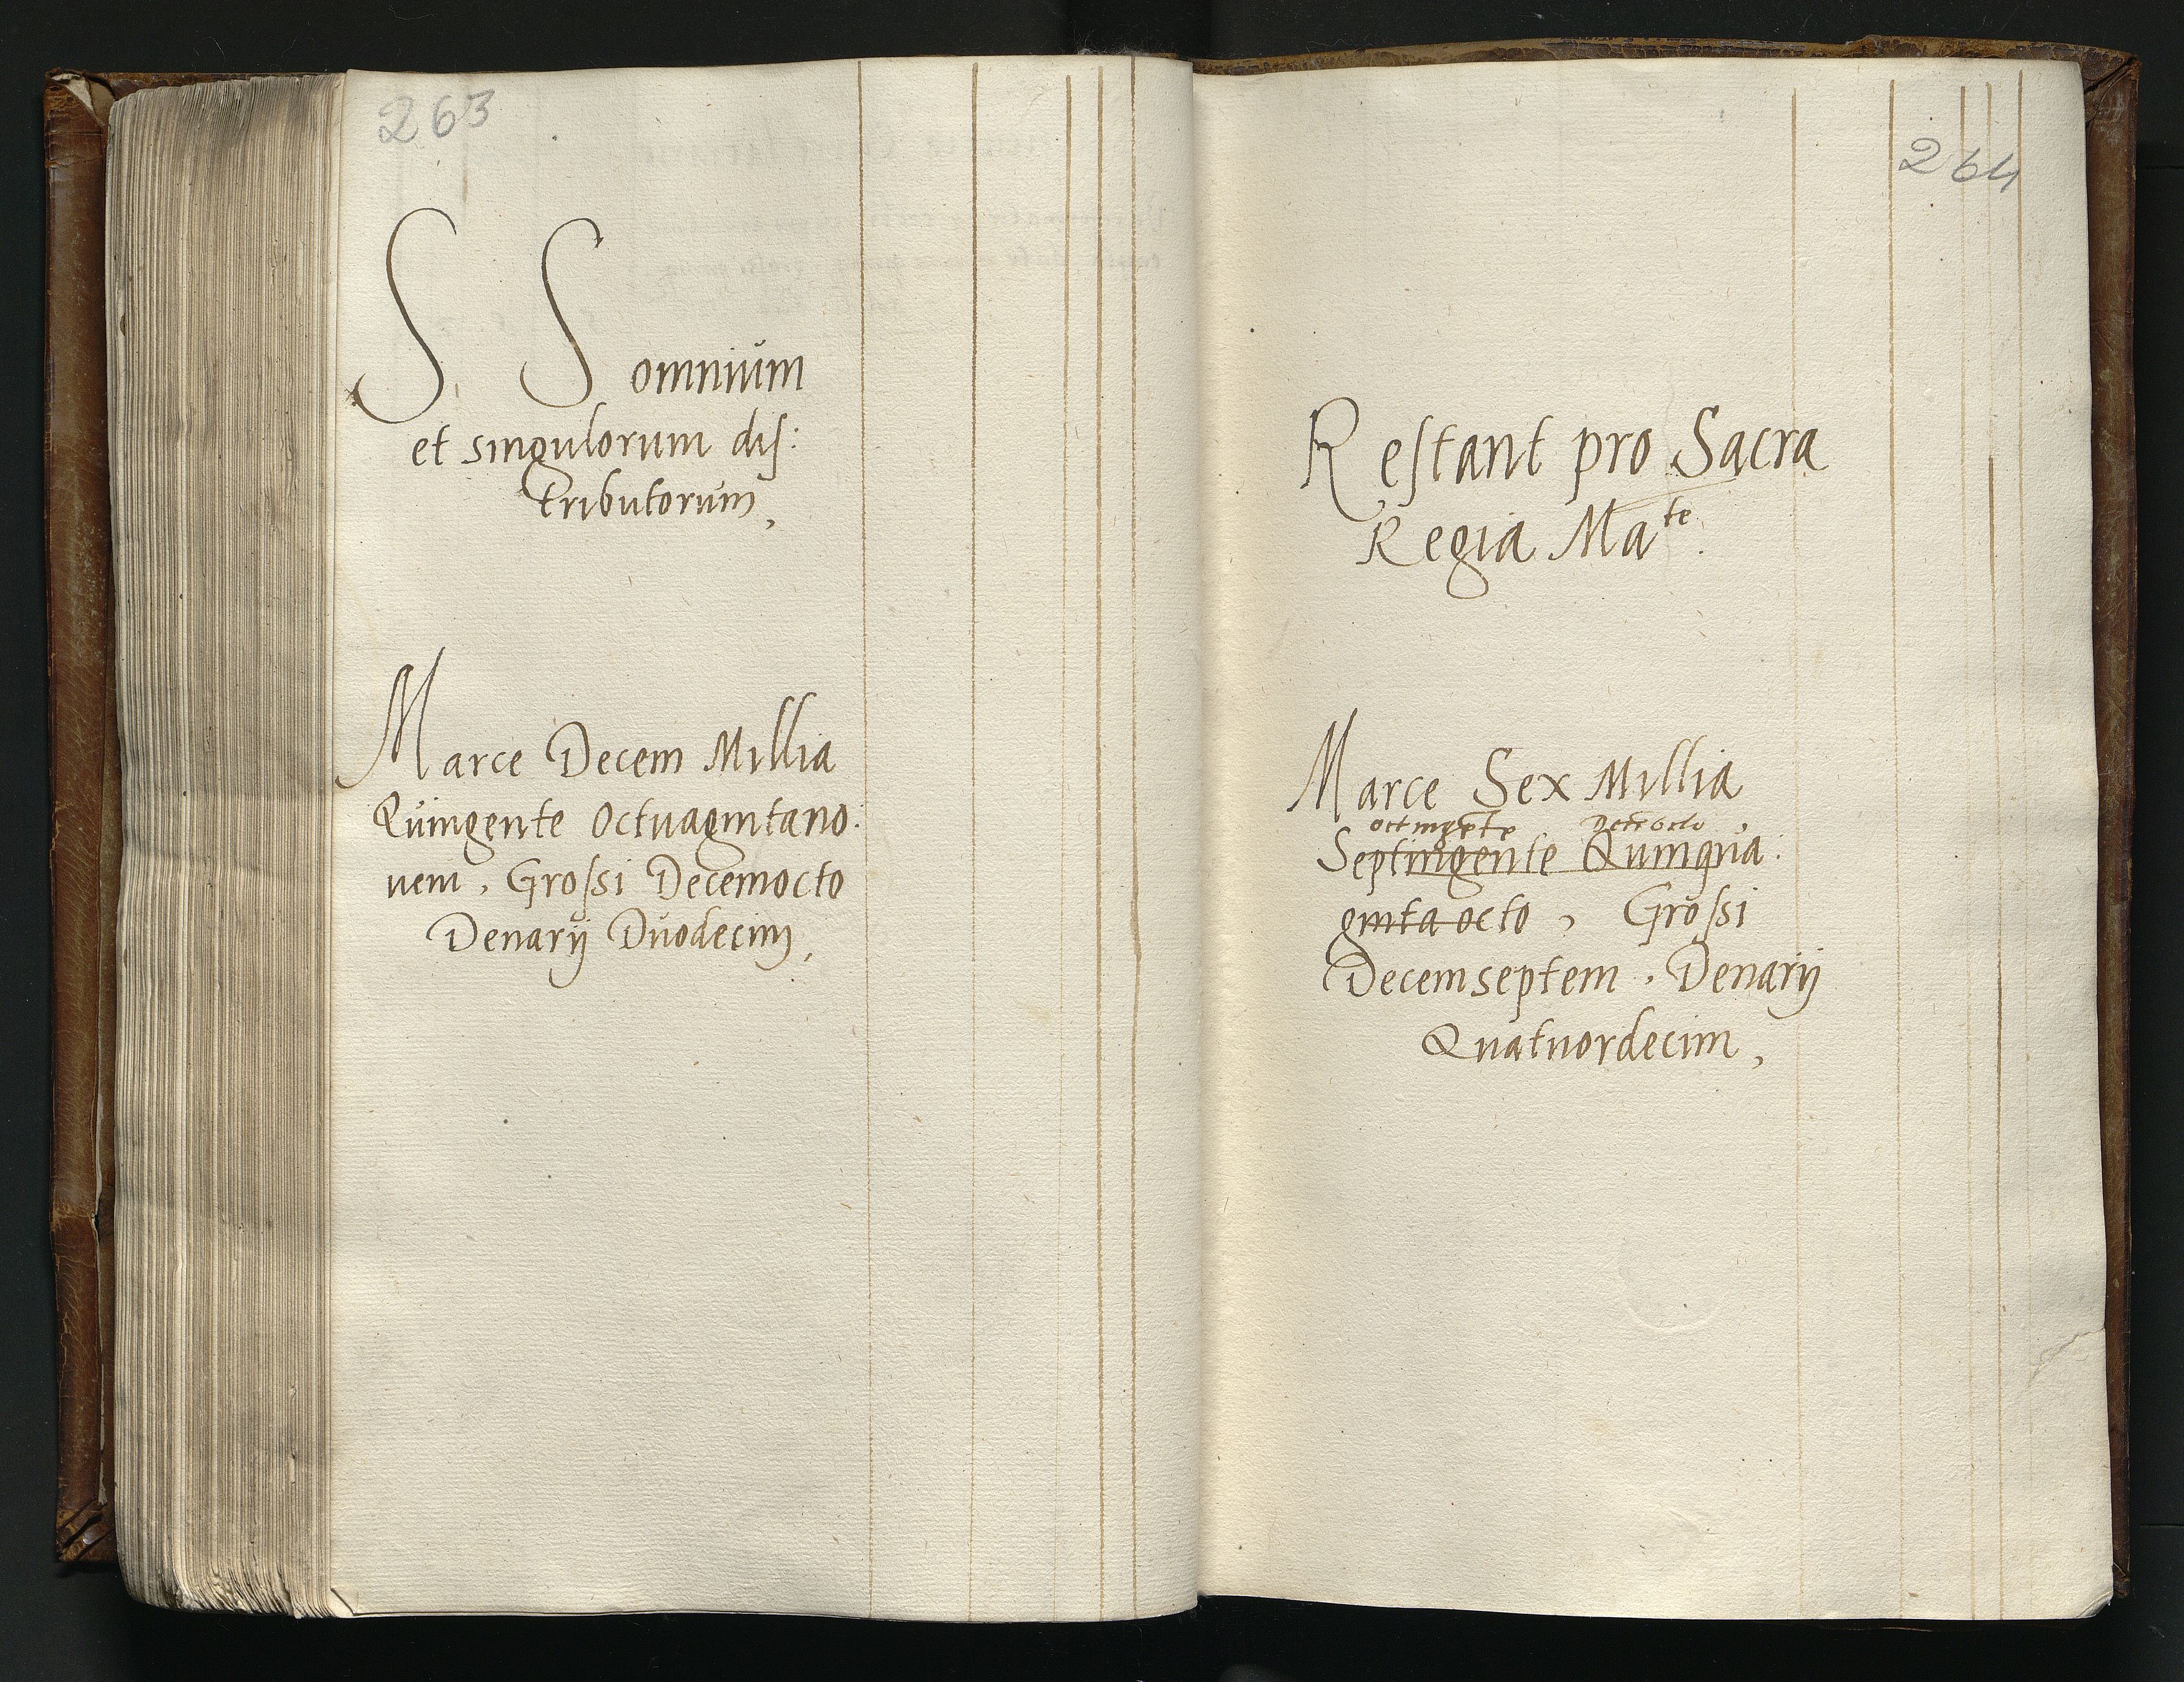 263
S S omnium
et singulorum dis:
tributorum,
Marce Decem Millia
Quingente Octuagintano:
uem, Grossi Decemocto
Denarij Duodecim,
264
Restant pro Sacra
Regia Ma^te.
Marce Sex Millia
octingete Dece octo,
Septingente Quinqua:
ginta octo, Grossi
Decemseptem, Denarij
Quatuordecim,